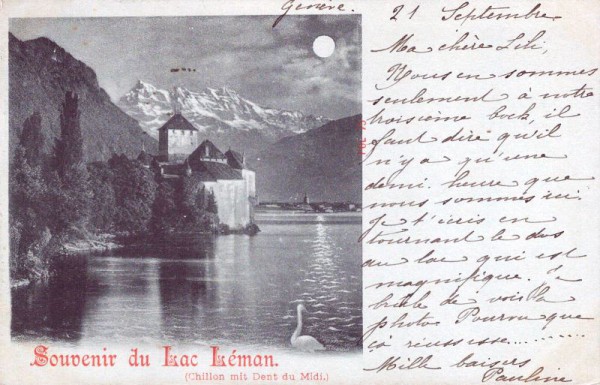 Genève.
21 Septembre
Ma chère Lili,
Nous en sommes
seulement à notre
troisième bock, il
faut dire qu'il
n'y a qu'une
demi-heure que
nous sommes ici.
Je t'ecris en
tournant le dos
au lac qui est
magnifique. Je
brûle de voir la
photo Pourvu que
ça réussisse..........
Mille baisers
Pauline
Souvenir du Lac Léman.
(Chillon mit Dent du Midi.)